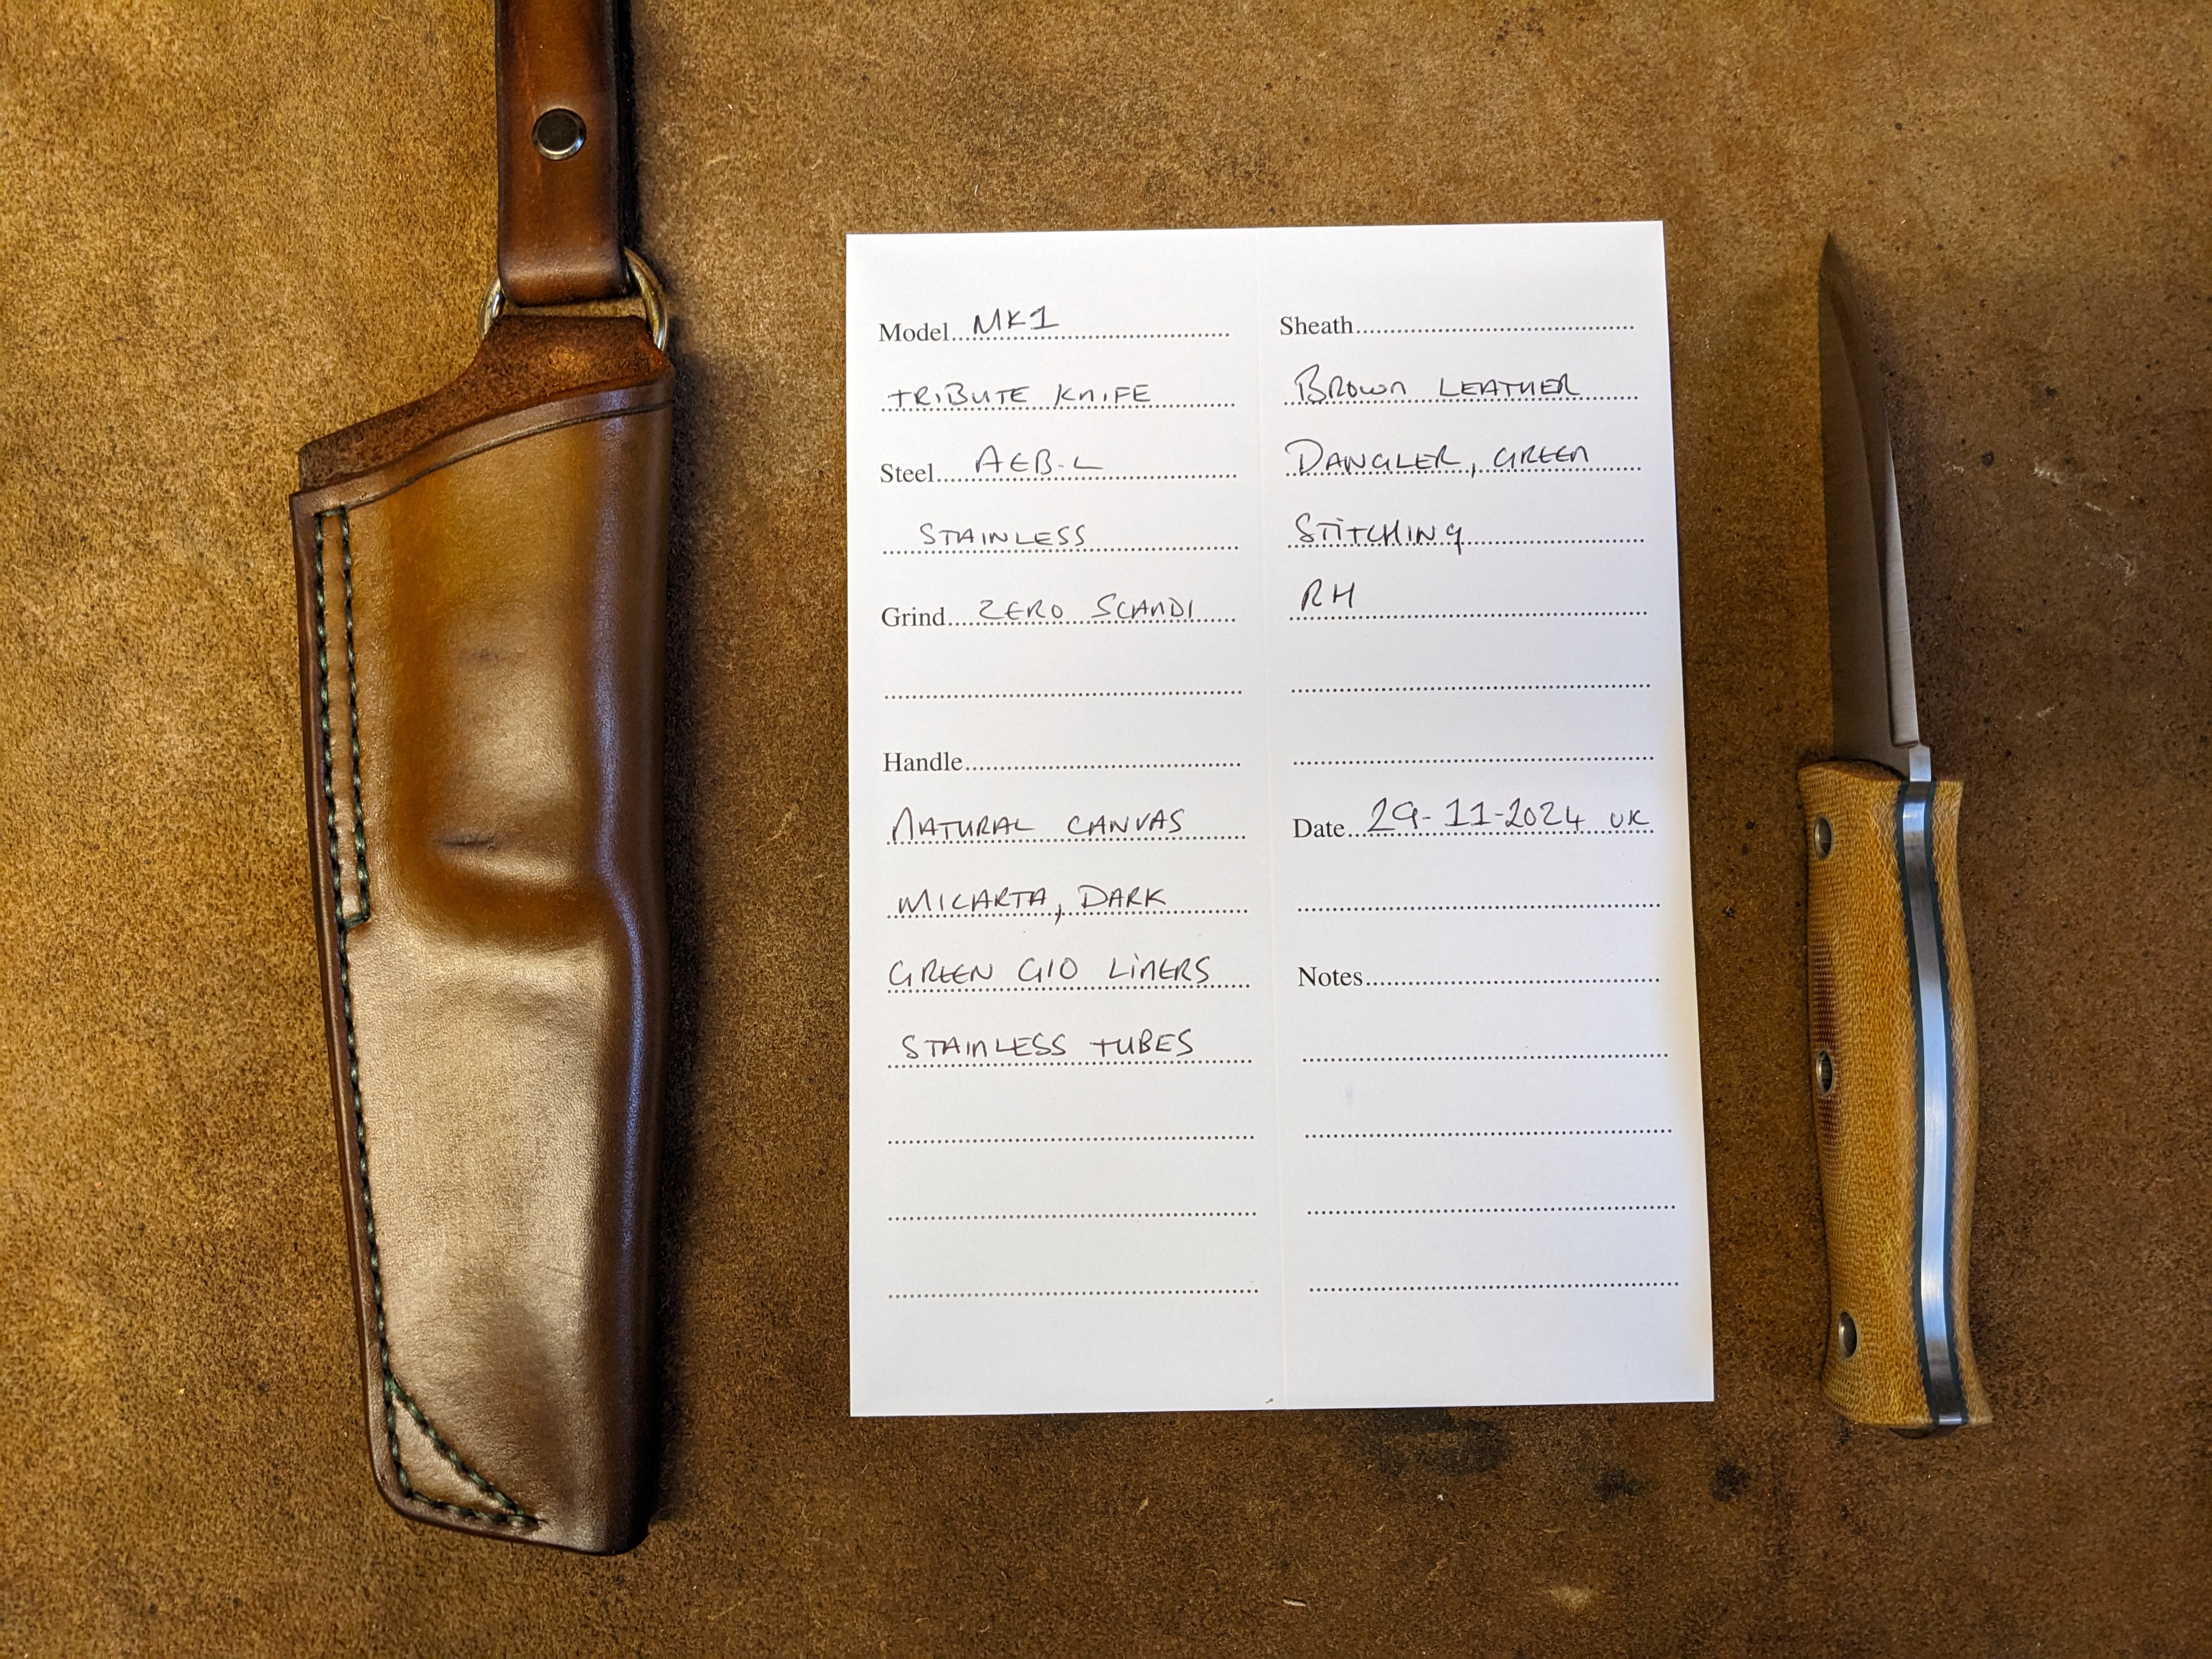 Model MK1
TRIBUTE KNIFE
Steel AEB-L
STAINLESS
Grind ZERO SCANDI
Handle
NATURAL CANVAS
MICARTA, DARK
GREEN G10 LINERS
STAINLESS TUBES
Sheath
BROWN LEATHER
DANGLER, GREEN
STITCHING
RH
Date 29-11-2024 UK
Notes